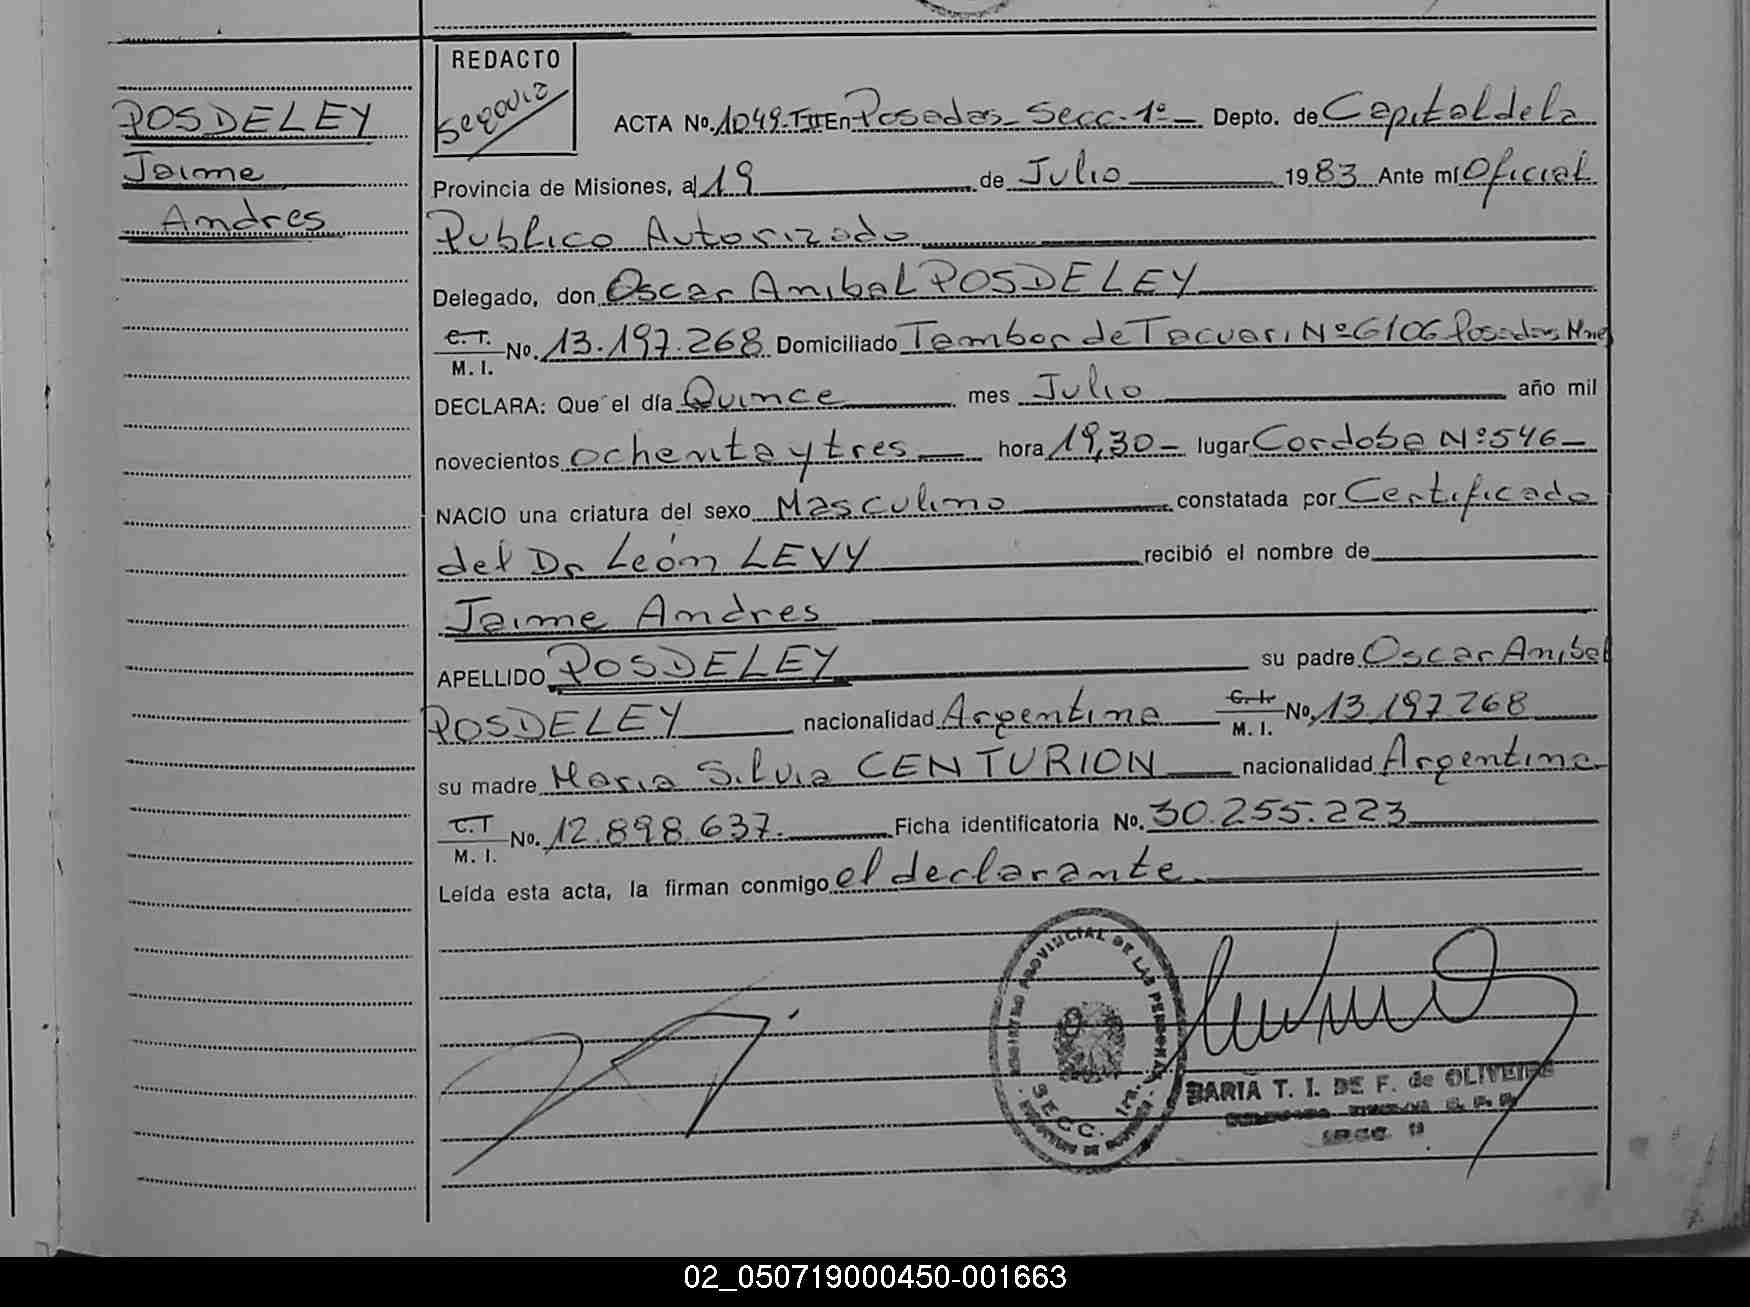 POSDELEY
Jaime
Andres
REDACTO
ACTA No. 1049-TII En Posadas Secc. 1º Depto. de Capital de la
Provincia de Misiones, al 19 de Julio 1983 Ante mí Oficial
Publico Autorizado
Delegado, don Oscar Anibal POSDELEY
C. I. M. I. No. 13.197.268 Domiciliado Tambor de Tacuari Nº 6106 Posadas Mnes
DECLARA: Que el día Quince mes Julio año mil
novecientos ochenta y tres hora 19,30 - lugar Cordoba Nº 546 -
NACIO una criatura del sexo Masculino constatada por Certificado
del Dr León LEVY recibió el nombre de
Jaime Andres
APELLIDO POSDELEY su padre Oscar Anibal
POSDELEY nacionalidad Argentina C. I. M. I. No. 13.197.268
su madre Maria Silvia CENTURION nacionalidad Argentina
C. I. M. I. No. 12.898.637. Ficha identificatoria No. 30.255.223
Leída esta acta, la firman conmigo el declarante.
REGISTRO PROVINCIAL DE LAS PERSONAS
SECC. 1ra.
MARIA T. I. DE F. de OLIVEIRA
SECC. 1ª
02_050719000450-001663